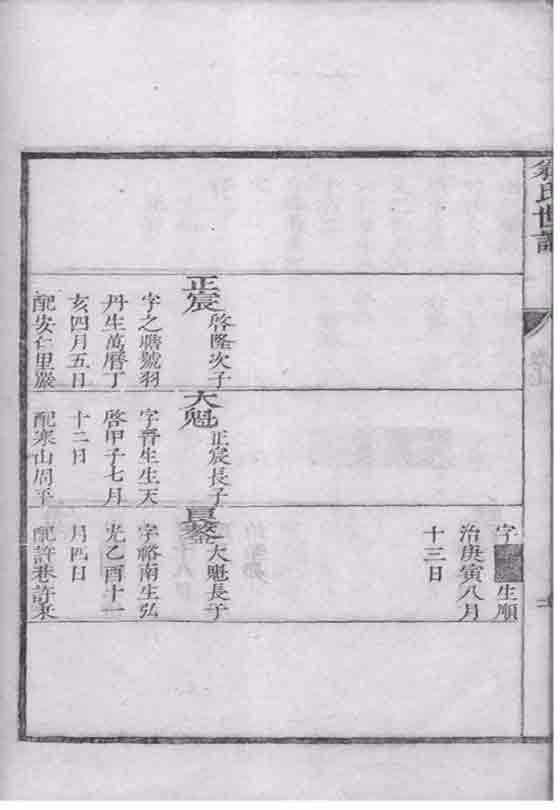 氏世譜
正宸
啓隆次子
字之塘號羽
丹生萬曆丁
亥四月五日
配安仁里嚴
大魁
正宸長子
字晉生生天
啓甲子七月
十二日
配寒山周乎
字
生順
治庚寅八月
十三日
大魁長子
字裕南生弘
光乙酉十一
月四日
配許巷許承